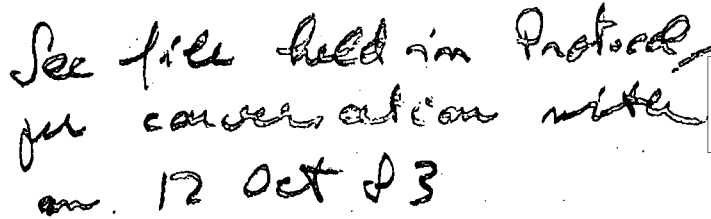 See file held in Protocol,
per conversation with
on 12 Oct 83